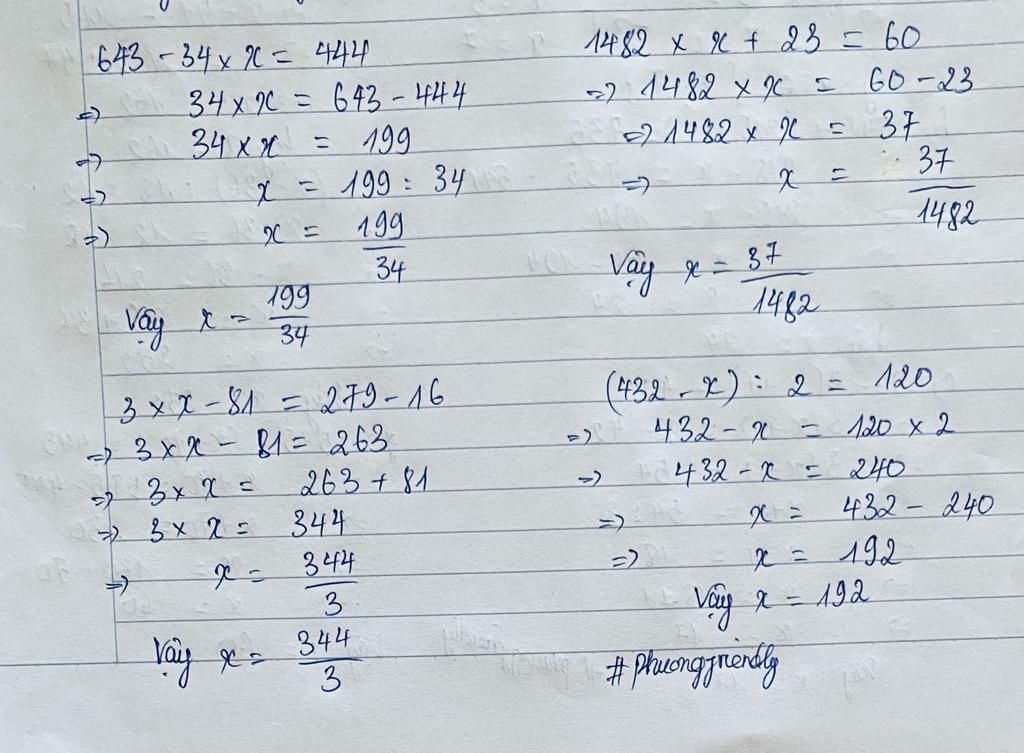 643 - 34 × x = 444
=> 34 × x = 643 - 444
=> 34 × x = 199
=> x = 199 : 34
=> x = 199/34
Vậy x = 199/34
1482 × x + 23 = 60
=> 1482 × x = 60 - 23
=> 1482 × x = 37
=> x = 37/1482
Vậy x = 37/1482
3 × x - 81 = 279 - 16
=> 3 × x - 81 = 263
=> 3 × x = 263 + 81
=> 3 × x = 344
=> x = 344/3
Vậy x = 344/3
(432 - x) : 2 = 120
=> 432 - x = 120 × 2
=> 432 - x = 240
=> x = 432 - 240
=> x = 192
Vậy x = 192
#phuongfriendly